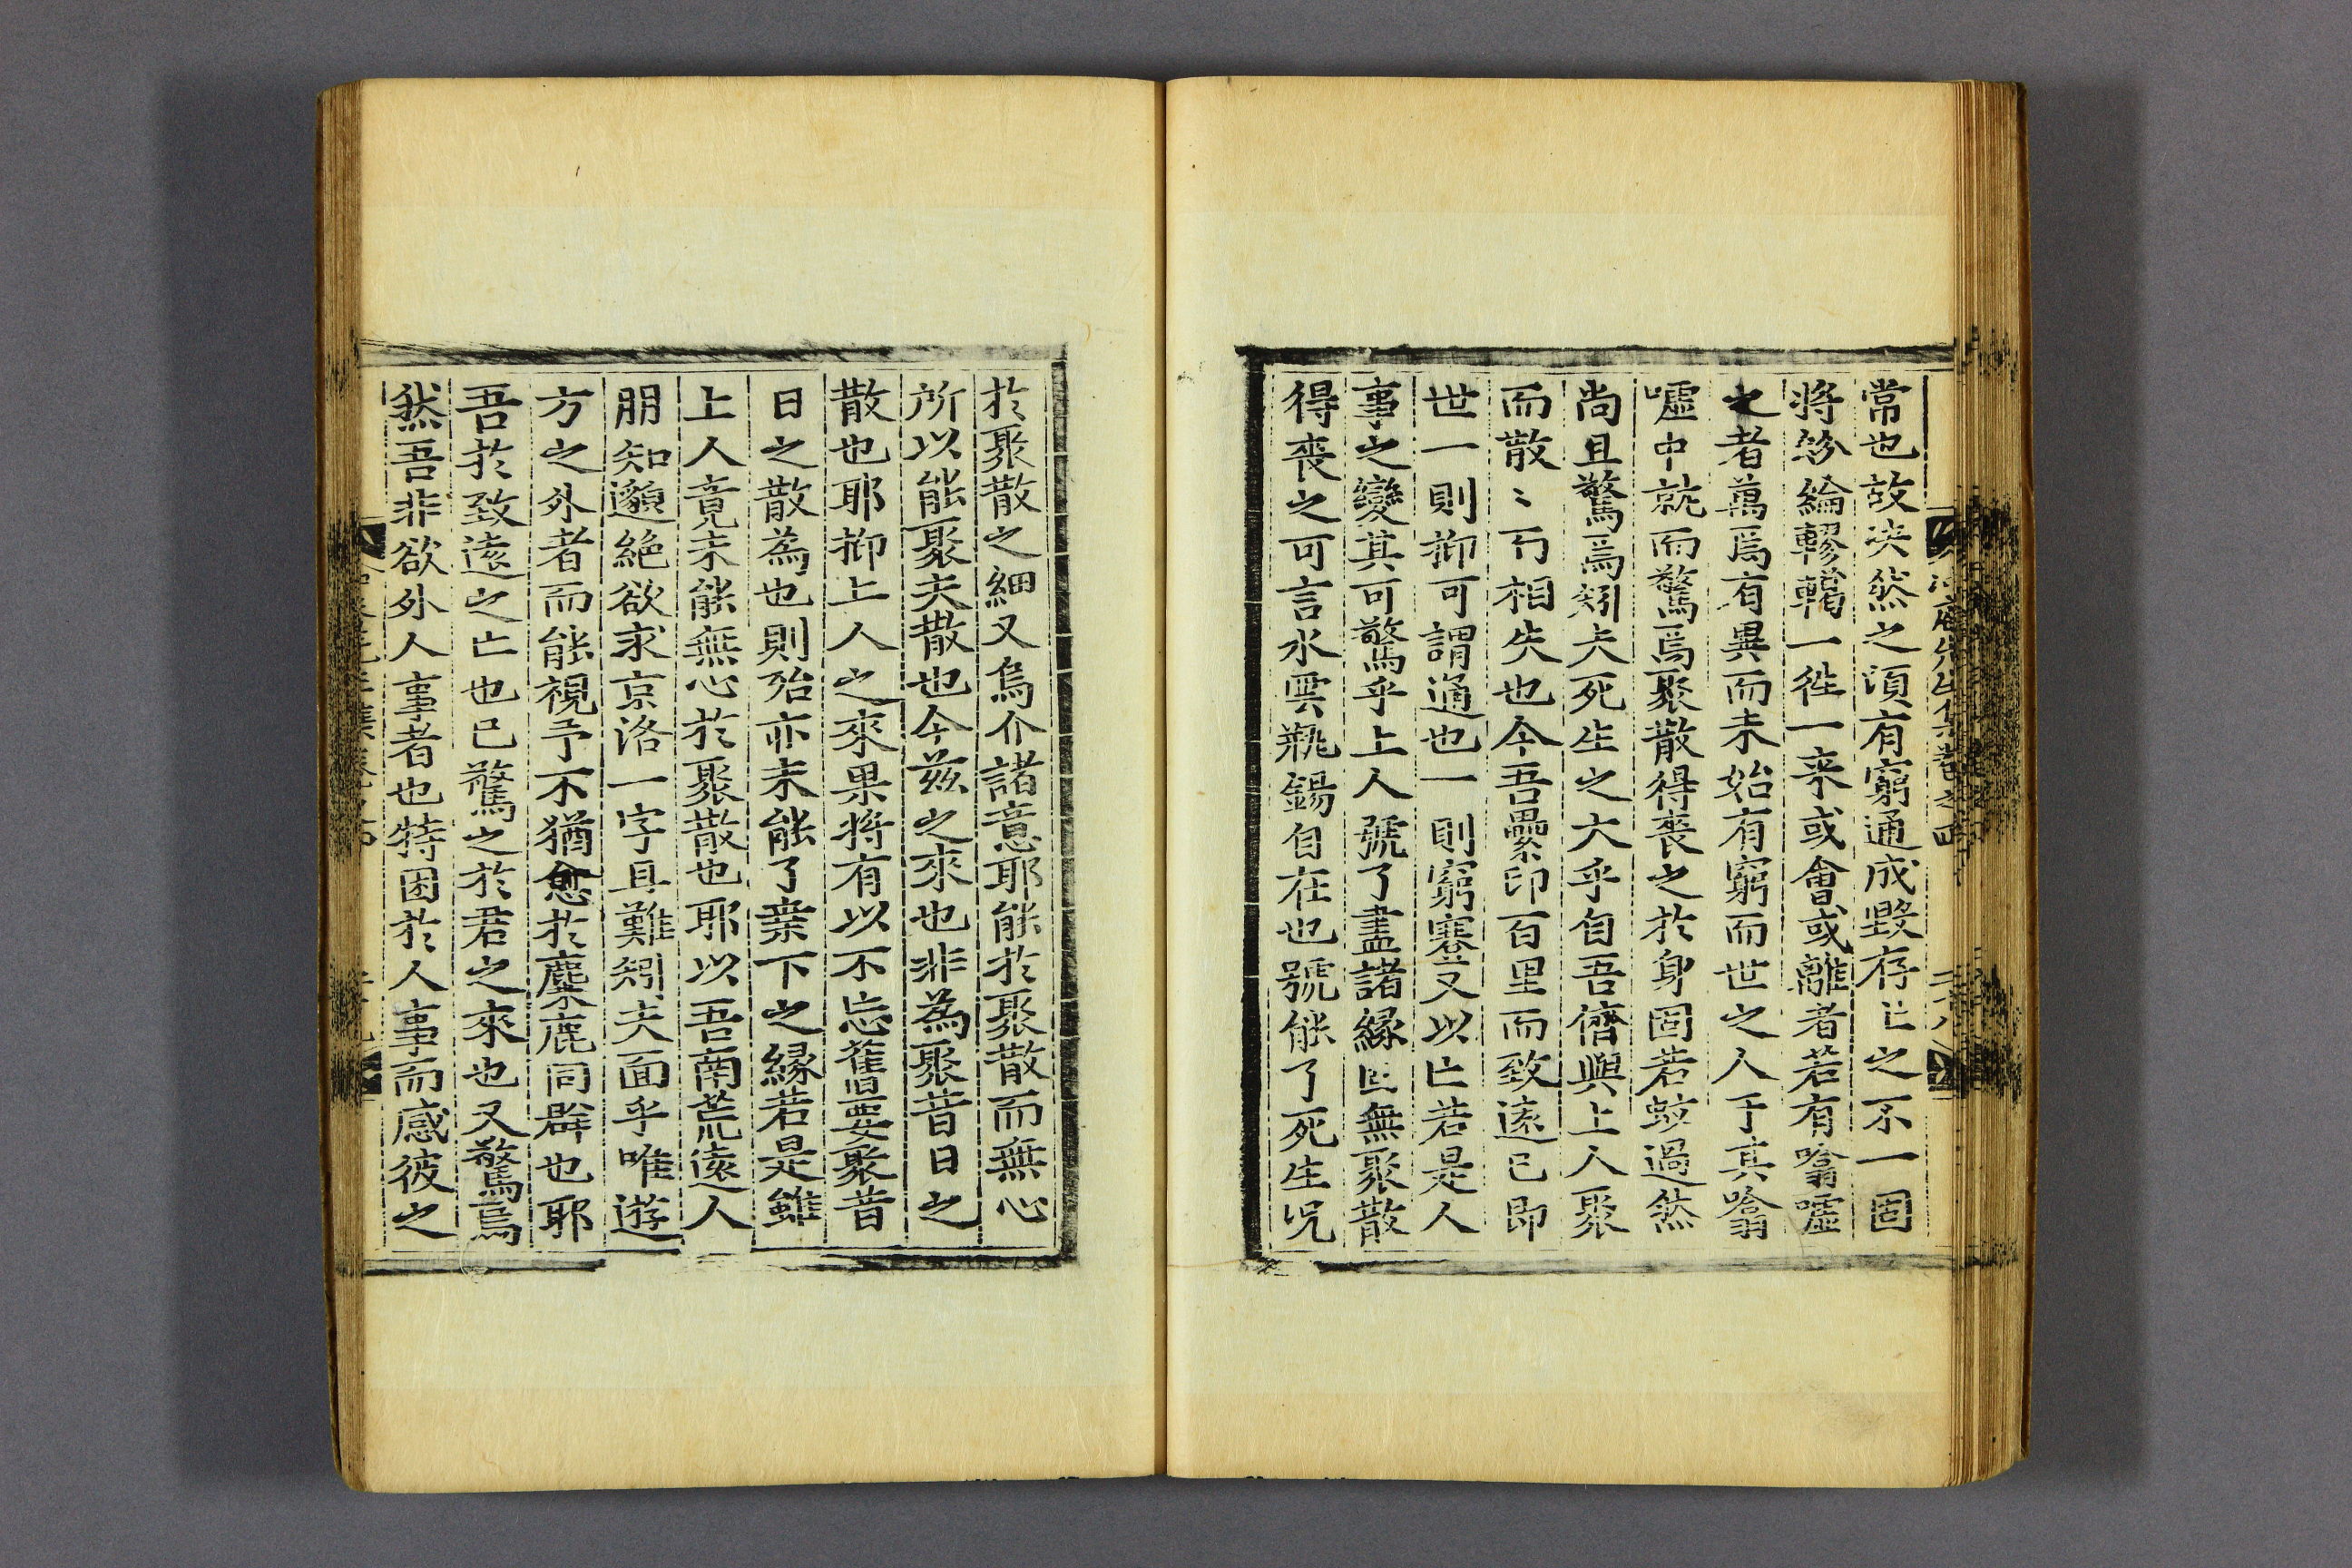 常也故泱然之湏有窮通成毀存亡之不一固
將紛綸轇轕一徃一来或會或離者若有噏嘘
之者萬焉有異而未始有窮而世之人于其噏
嘘中就而驚焉聚散得喪之於身固若蚊過然
尚且驚焉矧夫死生之大乎自吾儕與上人聚
而散〻丐相失也今吾纍印百里而致逺已即
世一則抑可謂通也一則窮蹇又以亡若是人
事之變其可驚乎上人號了盡諸緣旣無聚散
得喪之可言水雲甁錫自在也號能了死生况
於聚散之細又烏介諸意耶能於聚散而無心
所以能聚夫散也今兹之來也非為聚昔日之
散也耶抑上人之來果將有以不忘舊要聚昔
日之散為也則殆亦未能了棄下之緣若是雖
上人竟未能無心於聚散也耶以吾南荒逺人
朋知邈絶欲求京洛一字且難矧夫面乎唯遊
方之外者而能視予不猶愈於麋鹿同群也耶
吾於致逺之亡也已驚之於君之來也又驚焉
然吾非欲外人事者也特困於人事而感彼之